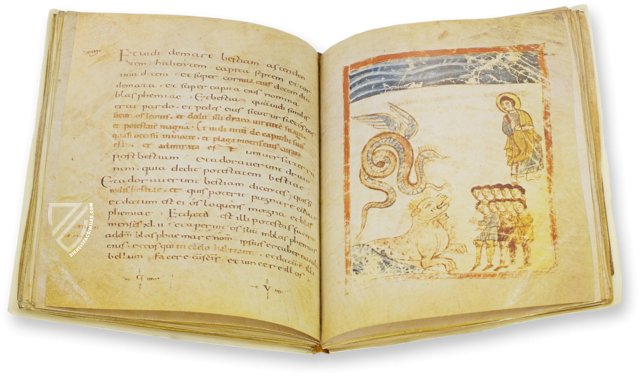 Et uidi de mari bestiam ascenden
tem habentem capita septem et cor
nua decem et super cornua eius decem dia
demata et super capita eius nomina
blasphemiae Et bestia quam uidi similis
erat pardo et pedes eius sicut ursi et os si
cut os leonis et dedit illi draco uirtutem suam
et potestatem magna Et uidi unu de capitibus suis
quasi occisum in morte et plaga mortis eius curata
est et admirata est uniuersa terra
post bestiam et adorauerunt draco
nem quia dedit potestatem bestiae
Et adorauerunt bestiam dicentes quis
similis bestiae et quis poterit pugnare cum ea
et datum est ei os loquens magna et blas
phemiae Et data est illi potestas facere
menses xl ii et aperuit os suum in blasphemias
ad dm blasphemare nomen ipsius et tabernaculum
eius et eos qui in celo habitant et datu est illi
bellum facere cum scis et uincere illos